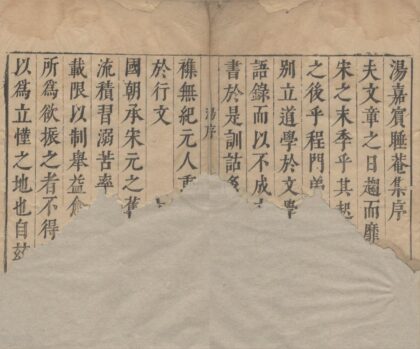 湯嘉賓睡菴集序
夫文章之日趨而靡
宋之末季乎其起
之後乎程門弟
別立道學於文學
語錄而以不成
書於是訓詁
湯序
樵無紀元人重
於行文
國朝承宋元之舊
流積習溺苦率
載限以制舉益
所爲欲振之者不得
以爲立懂之地也自茲